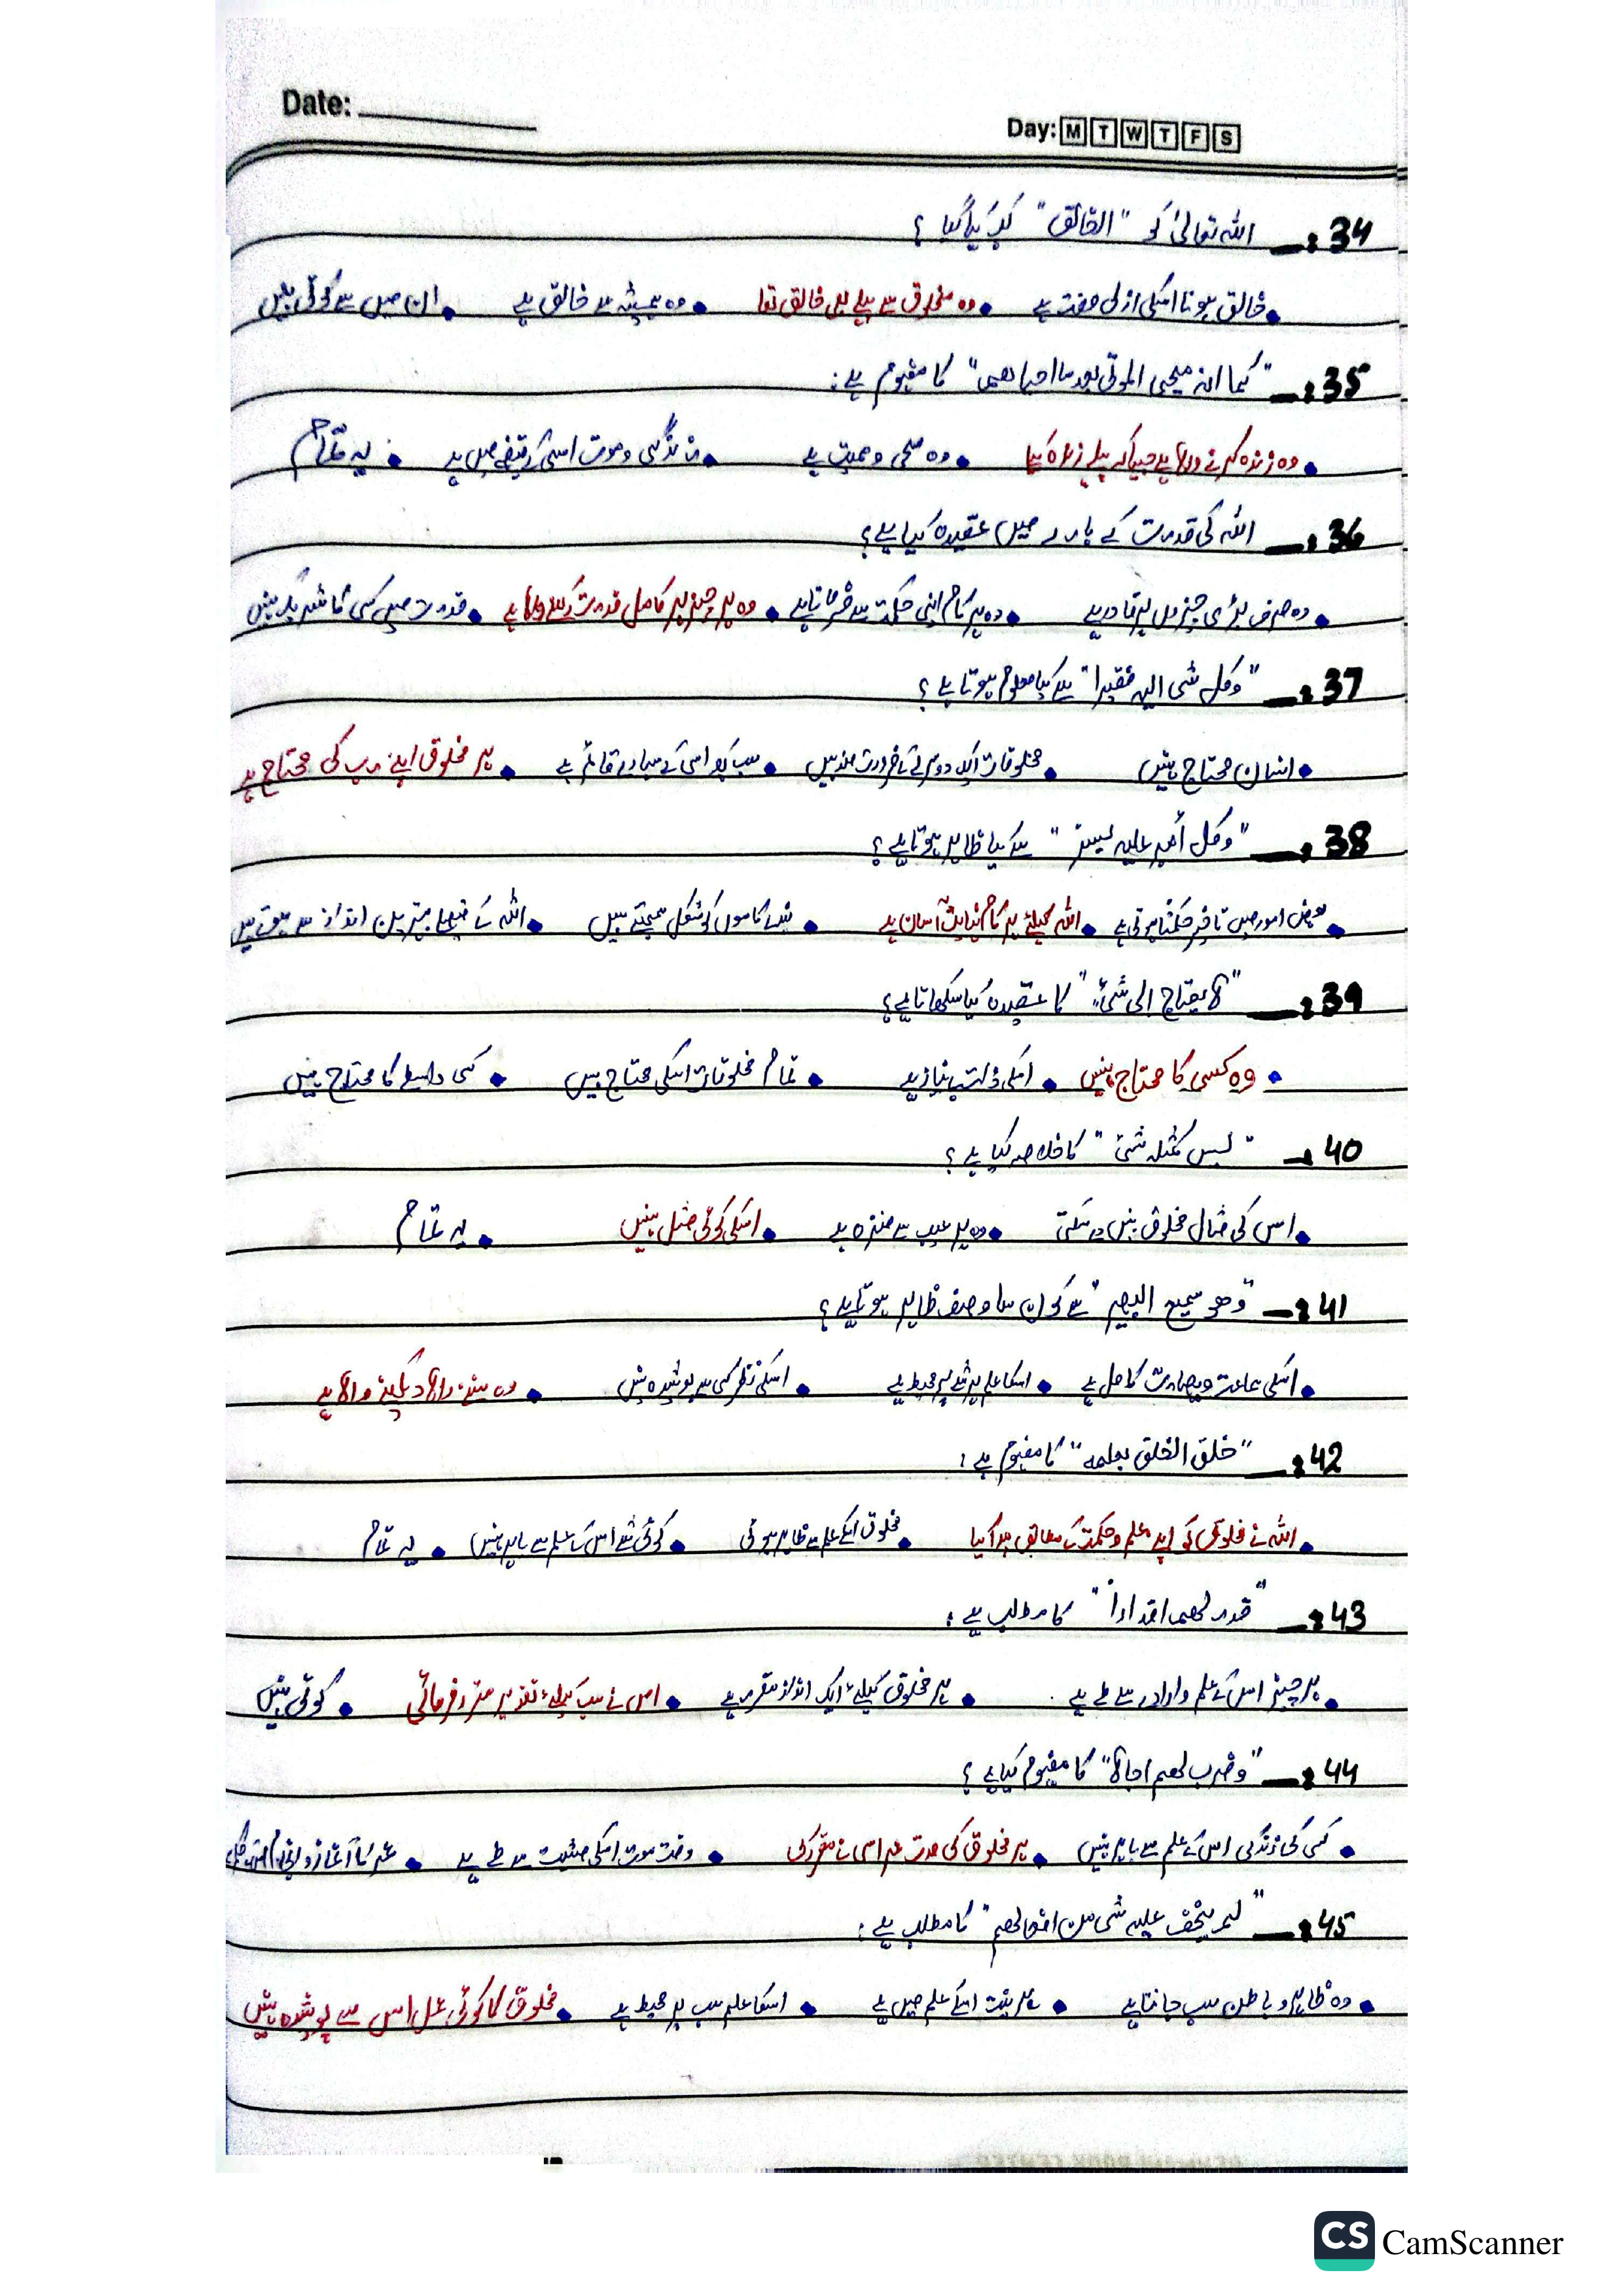 Date:
Day: M T W T F S
34:_ اللہ تعالیٰ کو "الخالق" کیوں کہا گیا ؟
• خالق ہونا اسکی ازلی صفت ہے • وہ مخلوق سے پہلے بھی خالق تھا • وہ ہمیشہ سے خالق ہے • ان میں سے کوئی نہیں
35:_ "کما انہ محیی الموتی بعد ما احیاھم" کا مفہوم ہے:
• وہ زندہ کرنے والا ہے جیسا کہ پہلے زندہ کیا • وہ محی و ممیت ہے • زندگی و موت اسی کے قبضے میں ہے • یہ تمام
36:_ اللہ کی قدرت کے بارے میں عقیدہ کیا ہے؟
• وہ صرف بڑی چیزوں پر قادر ہے • وہ ہر کام اپنی حکمت سے فرماتا ہے • وہ ہر چیز پر کامل قدرت رکھنے والا ہے • قدرت میں کسی کا شریک نہیں
37:_ "وکل شی الیہ فقیر" سے کیا معلوم ہوتا ہے ؟
• انسان محتاج نہیں • مخلوقات ایک دوسرے کے ضرورت مند ہیں • سب کچھ اسی کے سہارے قائم ہے • ہر مخلوق اپنے رب کی محتاج ہے
38:_ "وکل أمیر علیہ یسیر" سے کیا ظاہر ہوتا ہے؟
• بعض امور میں تاخیر حکمتاً ہوتی ہے • اللہ کیلئے ہر کام نہایت آسان ہے • بندے کاموں کو مشکل سمجھتے ہیں • اللہ کے فیصلے بہترین انداز سے ہوتے ہیں
39:_ "لا یحتاج الی شیٔ" کا عقیدہ کیا سکھاتا ہے؟
• وہ کسی کا محتاج نہیں • اسکی ذات بے نیاز ہے • تمام مخلوقات اسکی محتاج ہیں • کسی واسطے کا محتاج نہیں
40_ "لیس کمثلہ شئ" کا خلاصہ کیا ہے ؟
• اس کی مثال مخلوق نہیں دے سکتی • وہ ہر عیب سے منزہ ہے • اسکی کوئی مثل نہیں • یہ تمام
41:_ "وھو سمیع البصیر" سے کون سا وصف ظاہر ہوتا ہے؟
• اسکی سماعت و بصارت کامل ہے • اسکا علم ہر شے پر محیط ہے • اسکی نظر کسی سے پوشیدہ نہیں • وہ سننے والا دیکھنے والا ہے
42:_ "خلق الخلق بعلمہ" کا مفہوم ہے :
• اللہ نے مخلوق کو اپنے علم و حکمت کے مطابق پیدا کیا • مخلوق اسکے علم سے ظاہر ہوئی • کوئی شے اس کے علم سے باہر نہیں • یہ تمام
43:_ "قدر لھم اقداراً" کا مطلب ہے :
• ہر چیز اس کے علم و ارادے سے طے ہے • ہر مخلوق کیلئے ایک انداز مقرر ہے • اس نے سب کیلئے تقدیر مقرر فرمائی • کوئی نہیں
44:_ "وضرب لھم اجالا" کا مفہوم کیا ہے ؟
• کسی کی زندگی اس کے علم سے باہر نہیں • ہر مخلوق کی مدت عمر اسی نے مقرر کی • وقت موت اسکی مشیت سے طے ہے • عمر کا آغاز و انتہا
45:_ "لم یخف علیہ شی من افعالھم" کا مطلب ہے :
• وہ ظاہر و باطن سب جانتا ہے • ہر نیت اسکے علم میں ہے • اسکا علم سب پر محیط ہے • مخلوق کا کوئی عمل اس سے پوشیدہ نہیں
CS CamScanner